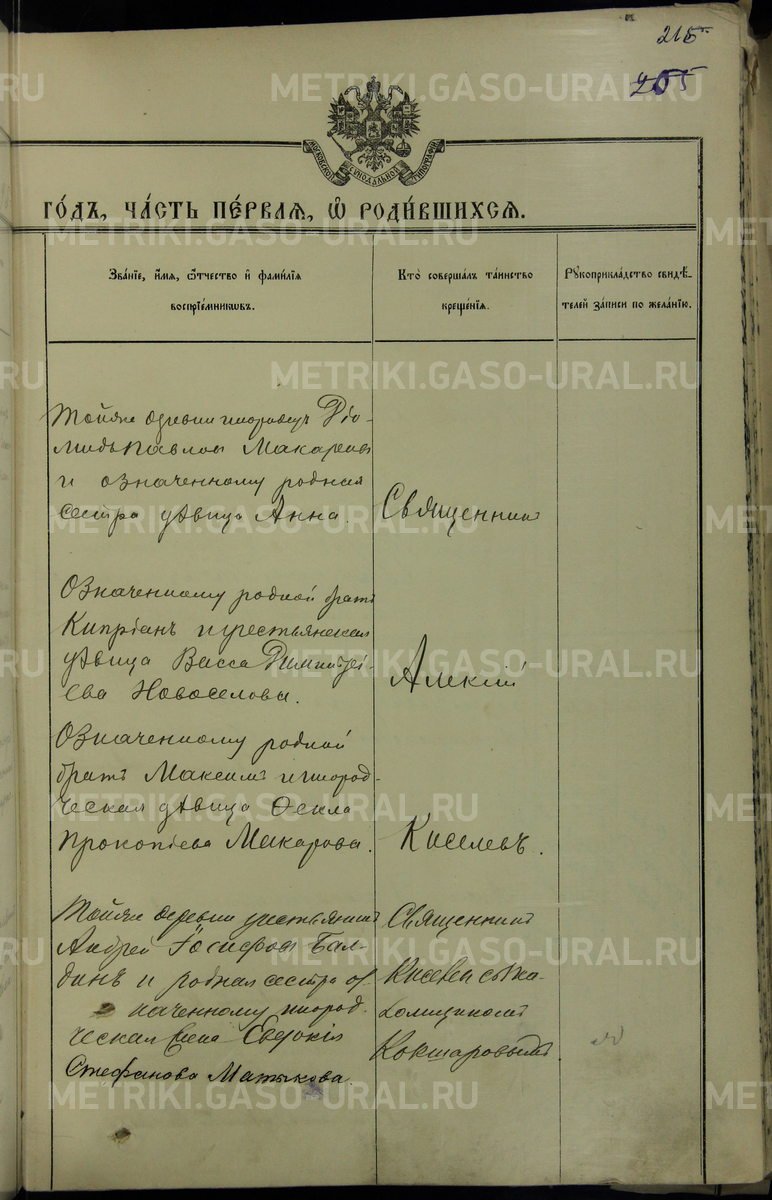 215
205
МОСКОВСКОЙ СѴНОДАЛЬНОЙ ТИПОГРАФІИ
ГО́ДЪ, ЧА́СТЬ ПЕ́РВАѦ, Ѽ РОДИ́ВШИХСѦ.
Зва́нїе, и҆́мѧ, ѻ҆́тчество и҆ фами́лїѧ
воспрїе́мникѡвъ.
Кто̀ соверша́лъ та́инство
креще́нїѧ.
Рꙋкоприкла́дство свидѣ́-
телей за́писи по жела́нїю.
Тойже деревни инородецъ Діо-
мидъ Павловъ Макаровъ
и означенному родная
сестра дѣвица Анна.
Священникъ
Означенному родной братъ
Кипріанъ и крестьянская
дѣвица Васса Димитрі-
ева Новоселова.
Алексій
Означенному родной
братъ Максимъ и инород-
ческая дѣвица
Прокопіева Макарова.
Киселевъ.
Тойже деревни крестьянинъ
Андрей Іосифовъ Бал-
динъ и родная сестра оз-
наченному инород-
ческая жена Евдокія
Стефанова Матыкова.
Священникъ
Киселевъ съ Пса-
ломщикомъ
Кокшаровымъ.
METRIKI.GASO-URAL.RU